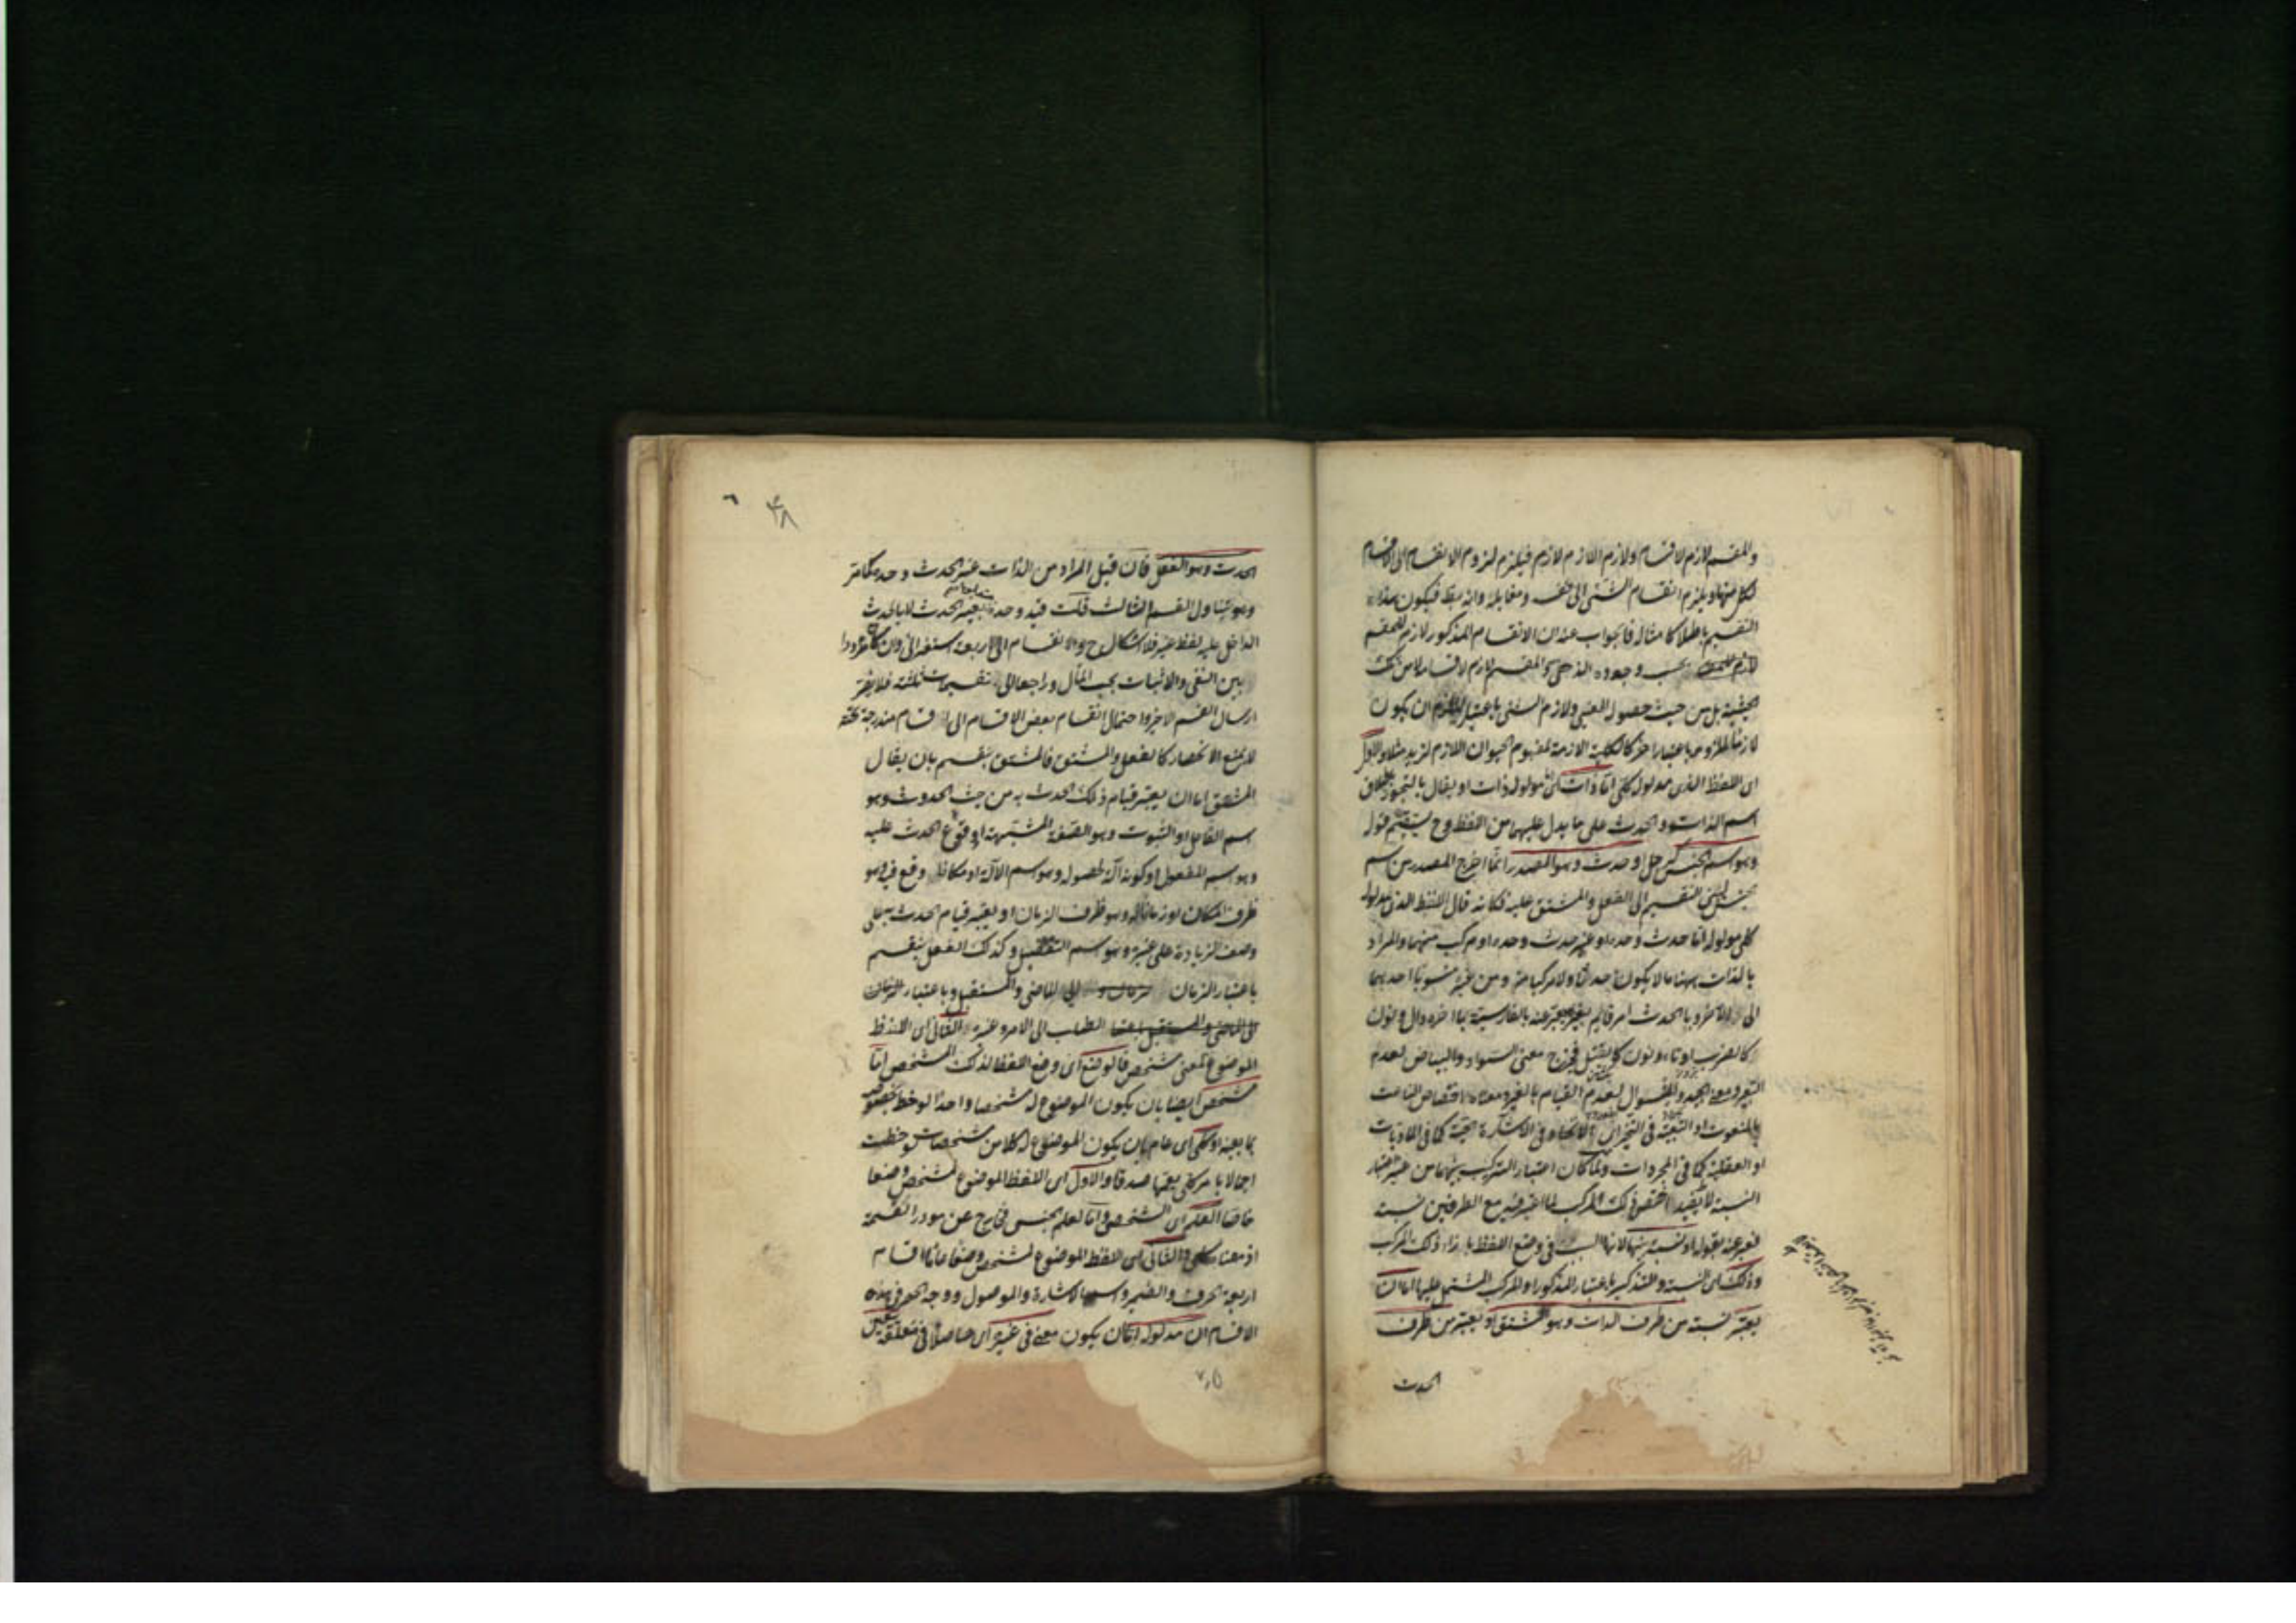 والمقسم لازم لاقسامه ولازم اللازم لازم فيلزم لزوم الانقسام الى الاقسام
فكل منها ويلزم انقسام الشئ الى نفسه ومقابله وانه بط فيكون هذا
التقسيم باطلا كامثاله فالجواب عنه ان الانقسام المذكور لازم للمقسم
بحسب وجوده الذهنى والمقسم لازم لاقسامه لا من تلك
الحيثية بل من حيث حصوله العينى ولازم الشئ باعتبار لا يلزم ان يكون
لازما لملزومه باعتبار اخر كالكلية اللازمة لمفهوم الحيوان اللازم لزيد مثلا والاول
اى اللفظ الذى مدلوله كلى اما ذات اى مدلوله ذات او يقال بالتجوز باطلاق
اسم الذات والحدث على ما يدل عليهما من اللفظ وح يستقيم قوله
وهو اسم الجنس كرجل او حدث وهو المصدر انما اخرج المصدر من اسم
الجنس التقسيم الى الفعل والمشتق عليه فكانه قال اللفظ الذى مدلوله
كلى مدلوله اما حدث وحده او غير حدث وحده او مركب منهما والمراد
بالذات ههنا ما لا يكون حدثا ولا مركبا منه ومن غيره منسوبا احدهما
الى الاخر وبالحدث امر قائم بغيره يعبر عنه بالفارسية بما اخره دال ونون
كالضرب او تاء ونون كالقتل فخرج معنى السواد والبياض لعدم
التعبير ومعنى الجيد لعدم القيام بالغير ومعناه اختصاص الناعت
بالمنعوت او التبعية فى التحيز اى الاتحاد فى الاشارة الحسية كما فى الماديات
او العقلية كما فى المجردات ولما كان اعتبار التركيب بينهما من غير اعتبار
النسبة لا يفيد اختص ذلك المركب بما اعتبر فيه مع الطرفين نسبة
فعبر عنه بقوله او نسبة بينهما لانها السبب فى وضع اللفظ بازاء ذلك المركب
وذلك اى النسبة والتذكير باعتبار المذكور او المركب المشتمل عليها اما ان
يعتبر نسبته من طرف الذات وهو المشتق او يعتبر من طرف
الحدث
٣٨
الحدث وهو الفعل فان قيل المراد من الذات غير الحدث وحده كما مر
وهو يتناول القسم الثالث قلت قيد وحده يعتبر الحدث لا بالحدث
الداخل عليه لفظ غير فلا اشكال ح والانقسام الى الاربعة استقرائى وان كان مرددا
بين النفى والاثبات بحسب المآل وراجعا الى تقسيمات ثلثة فلا يضر
ارسال القسم الاخير واحتمال انقسام بعض الاقسام الى اقسام مندرجة تحته
لا يمنع الانحصار كالفعل والمشتق فالمشتق ينقسم بان يقال
المشتق اما ان يعتبر قيام ذلك الحدث به من حيث الحدوث وهو
اسم الفاعل او الثبوت وهو الصفة المشبهة او وقوع الحدث عليه
وهو اسم المفعول او كونه آلة لحصوله وهو اسم الآلة او مكانا وقع فيه وهو
ظرف المكان او زمانا له وهو ظرف الزمان او يعتبر قيام الحدث به على
وصف الزيادة على غيره وهو اسم التفضيل وكذلك الفعل ينقسم
باعتبار الزمان الى الماضى والمستقبل وباعتبار
الطلب الى الامر وغيره والثانى اى اللفظ
الموضوع لمعنى مشخص فالوضع اى وضع اللفظ لذلك المشخص اما
مشخص ايضا بان يكون الموضوع له شخصا واحدا لوحظ بخصوصه
بعينه او كلى اى عام بان يكون الموضوع له كلا من مشخصات لوحظت
اجمالا بامر كلى يعمها صدقا والاول اى اللفظ الموضوع لمشخص وضعا
خاصا العلم اى الشخصى واما العلم الجنسى فخارج عن مورد القسمة
اذ معناه كلى والثانى اى اللفظ الموضوع لمشخص وضعا عاما اقسام
اربعة الحرف والضمير واسم الاشارة والموصول ووجه الحصر فى هذه
الاقسام ان مدلوله اما ان يكون معنى فى غيره اى حاصلا فى متعلقه